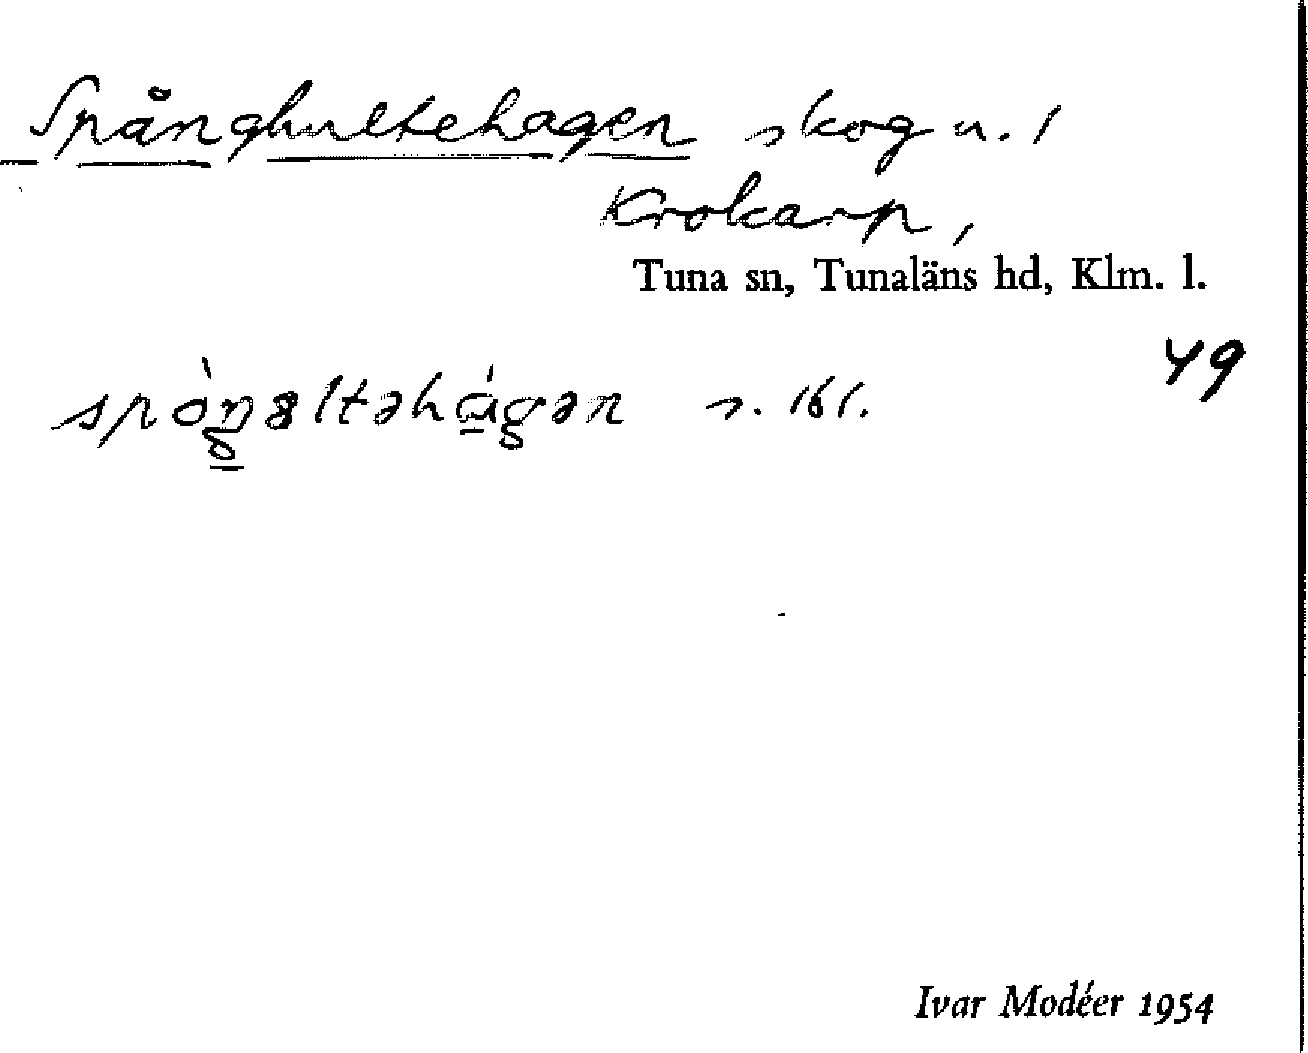 Spånghultehagen skog u. 1
Krokarp,
Tuna sn, Tunaläns hd, Klm. l.
49
s. 161.
Ivar Modéer 1954